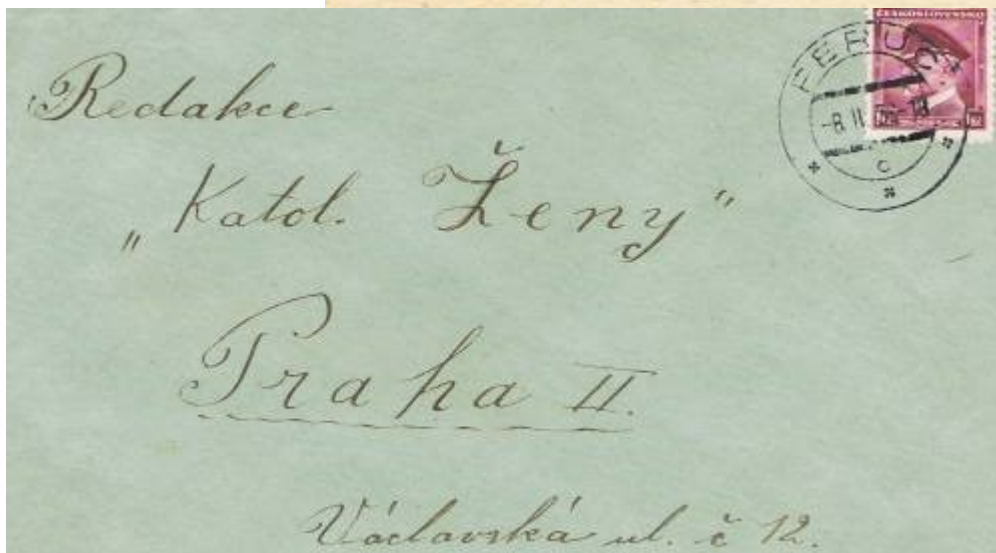 ČESKOSLOVENSKO
PERUC
-8.II
c
Redakce
„Katol. Ženy"
Praha II.
Václavská ul. č 12.